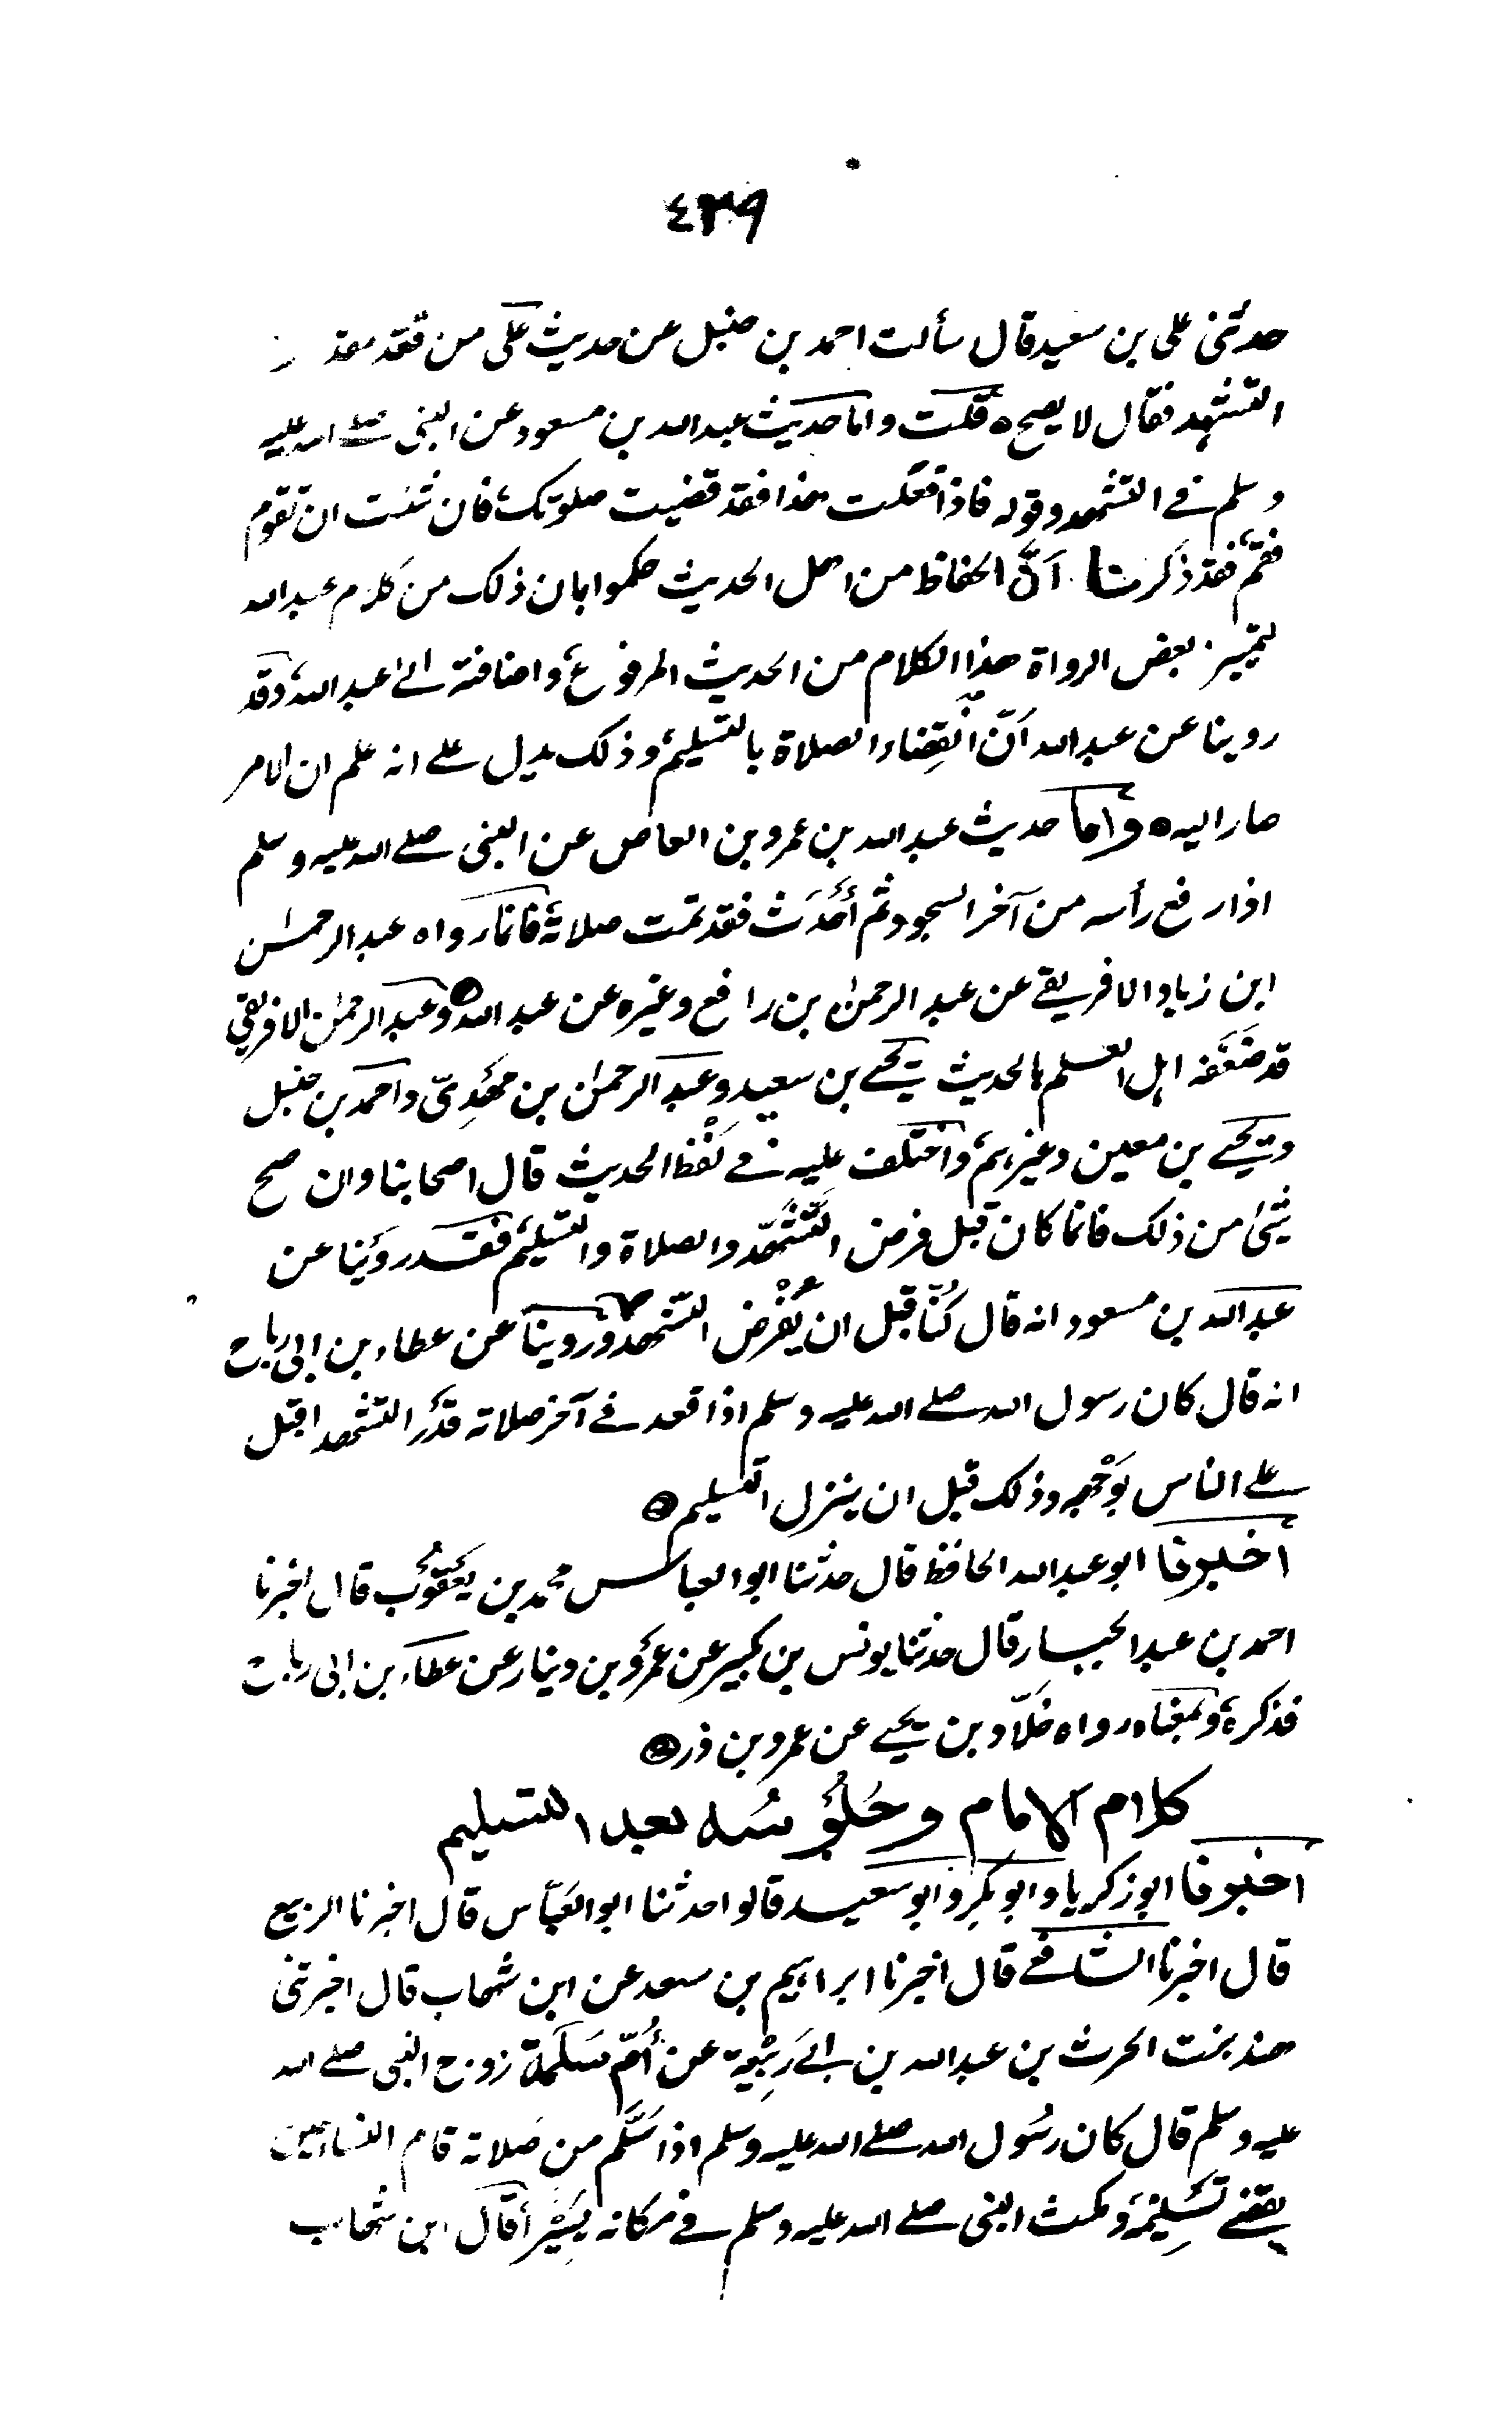 ٤٣٩
حدثنى على بن سعيد قال سألت احمد بن حنبل عن حديث على من قعد مقد
التشهد فقال لا يصح ٥ قلت واما حديث عبد الله بن مسعود عن النبى صلے الله عليه
وسلم فے التشهد وقوله فاذا فعلت هذا فقد قضيت صلوتك فان شئت ان تقوم
فقم فقد ذكرنا أنّ الحفاظ من اهل الحديث حكموا بان ذلك من كلام عبد الله
لتمييز بعض الرواة هذا الكلام من الحديث المرفوع واضافته الے عبد الله وقد
روينا عن عبد الله أنّ انْقِضاء الصلاة بالتسليم وذلك يدل علے انه علم ان الامر
صار اليه ٥ وأما حديث عبد الله بن عمرو بن العاص عن النبى صلے الله عليه وسلم
اذا رفع رأسه من آخر السجود ثم أحْدَث فقد تمت صلاته فانما رواه عبد الرحمن
ابن زياد الافريقے عن عبد الرحمن بن رافع وغيره عن عبد الله ٥ وعبد الرحمن الافريقى
قد ضَعَّفه اهل العلم بالحديث يحيے بن سعيد وعبد الرحمن بن مَهْدِىّ واحمد بن حنبل
ويحيے بن معين وغيرهم واختلف عليه فے لَفْظ الحديث قال اصحابنا وان صح
شئ من ذلك فانما كان قبل فرض التَّشَهّد والصلاة والتسليم فقد روينا عن
عبد الله بن مسعود انه قال كُنّا قبل ان يُفْرض التشهد وروينا عن عطاء بن ابى رباح
انه قال كان رسول الله صلے الله عليه وسلم اذا قعد فے آخر صلاته قدْر التشهد اقبل
علے الناس بوَجْهه وذلك قبل ان ينزل التسليم ٥
اخبرنا ابو عبد الله الحافظ قال حدثنا ابو العباس محمد بن يَعْقُوب قال اخبرنا
احمد بن عبد الجبار قال حدثنا يونس بن بكير عن عمرو بن دينار عن عطاء بن ابى رباح
فذكره وبمعناه رواه خلّاد بن يحيے عن عمرو بن ذر ٥
كلام الامام وجُلُوسُه بعد التسليم
اخبرنا ابو زكريا وابو بكر وابو سعيد قالوا حدثنا ابو العبّاس قال اخبرنا الربيع
قال اخبرنا الشافعے قال اخبرنا ابراهيم بن سعد عن ابن شهاب قال اخبرتنى
هند بنت الحرث بن عبد الله بن ابے رَبِيْعة عن أُمّ سَلَمَة زوج النبى صلے الله
عليه وسلم قال كان رسُول الله صلے الله عليه وسلم اذا سَلَّم من صَلاته قام النساء حين
يقضے تَسْلِيْمَه ومكث النبى صلے الله عليه وسلم فے مكانه يَسِيْراً قال ابن شهاب